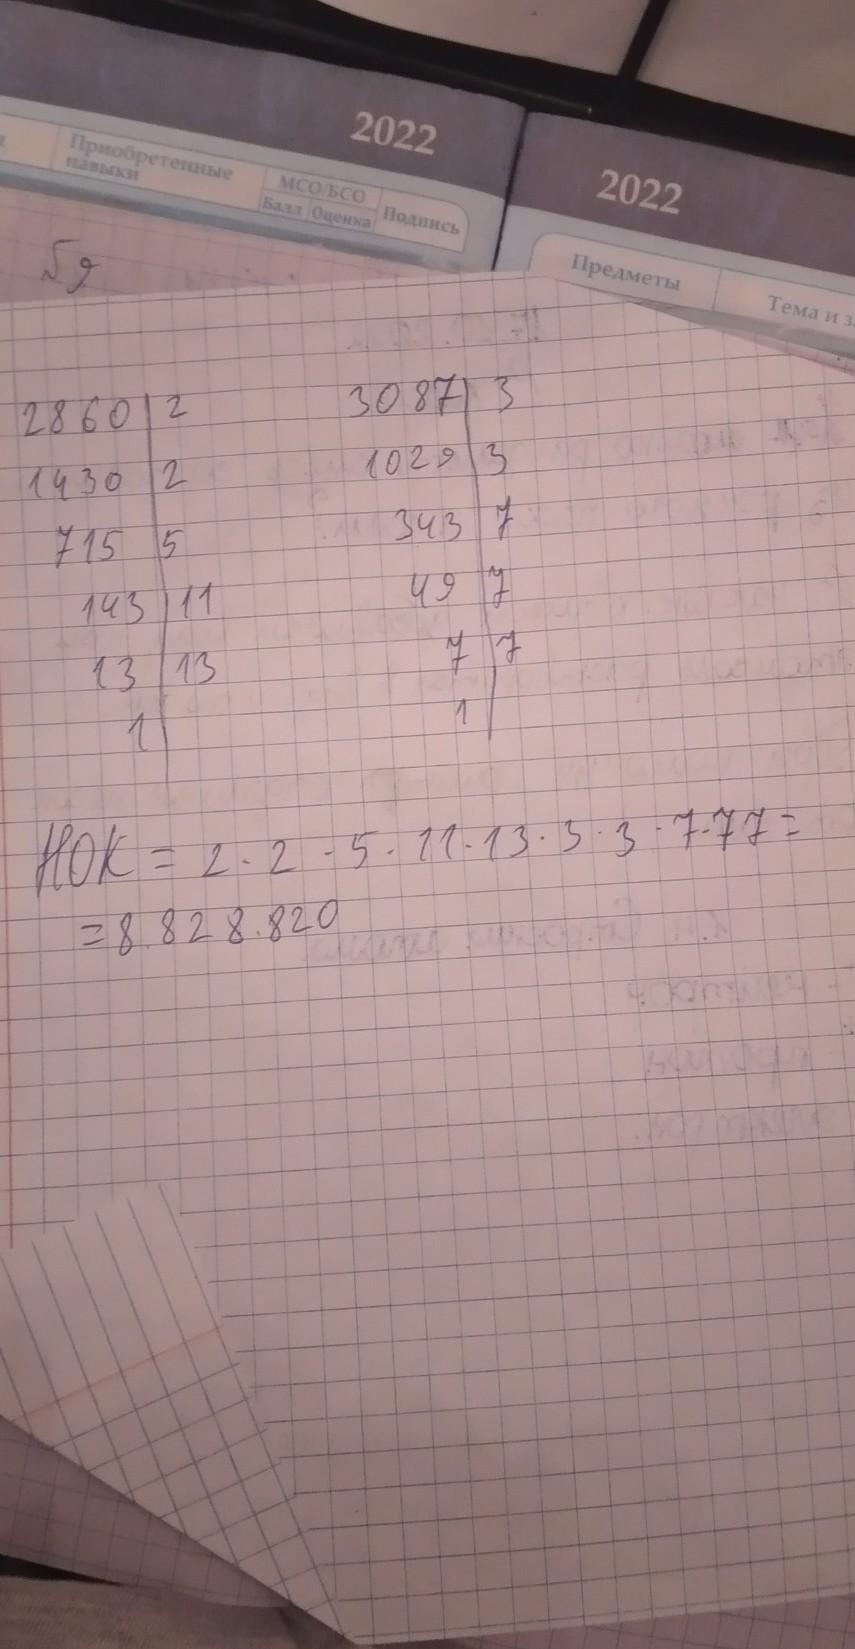 2022
Приобретенные
навыки
МСО/БСО
Балл Оценка
Подпись
2022
Предметы
Тема и з
2860 | 2
1430 | 2
715 | 5
143 | 11
13 | 13
1
3087 | 3
1029 | 3
343 | 7
49 | 7
7 | 7
1
НОК = 2 · 2 · 5 · 11 · 13 · 3 · 3 · 7 · 7 7 =
= 8.828.820